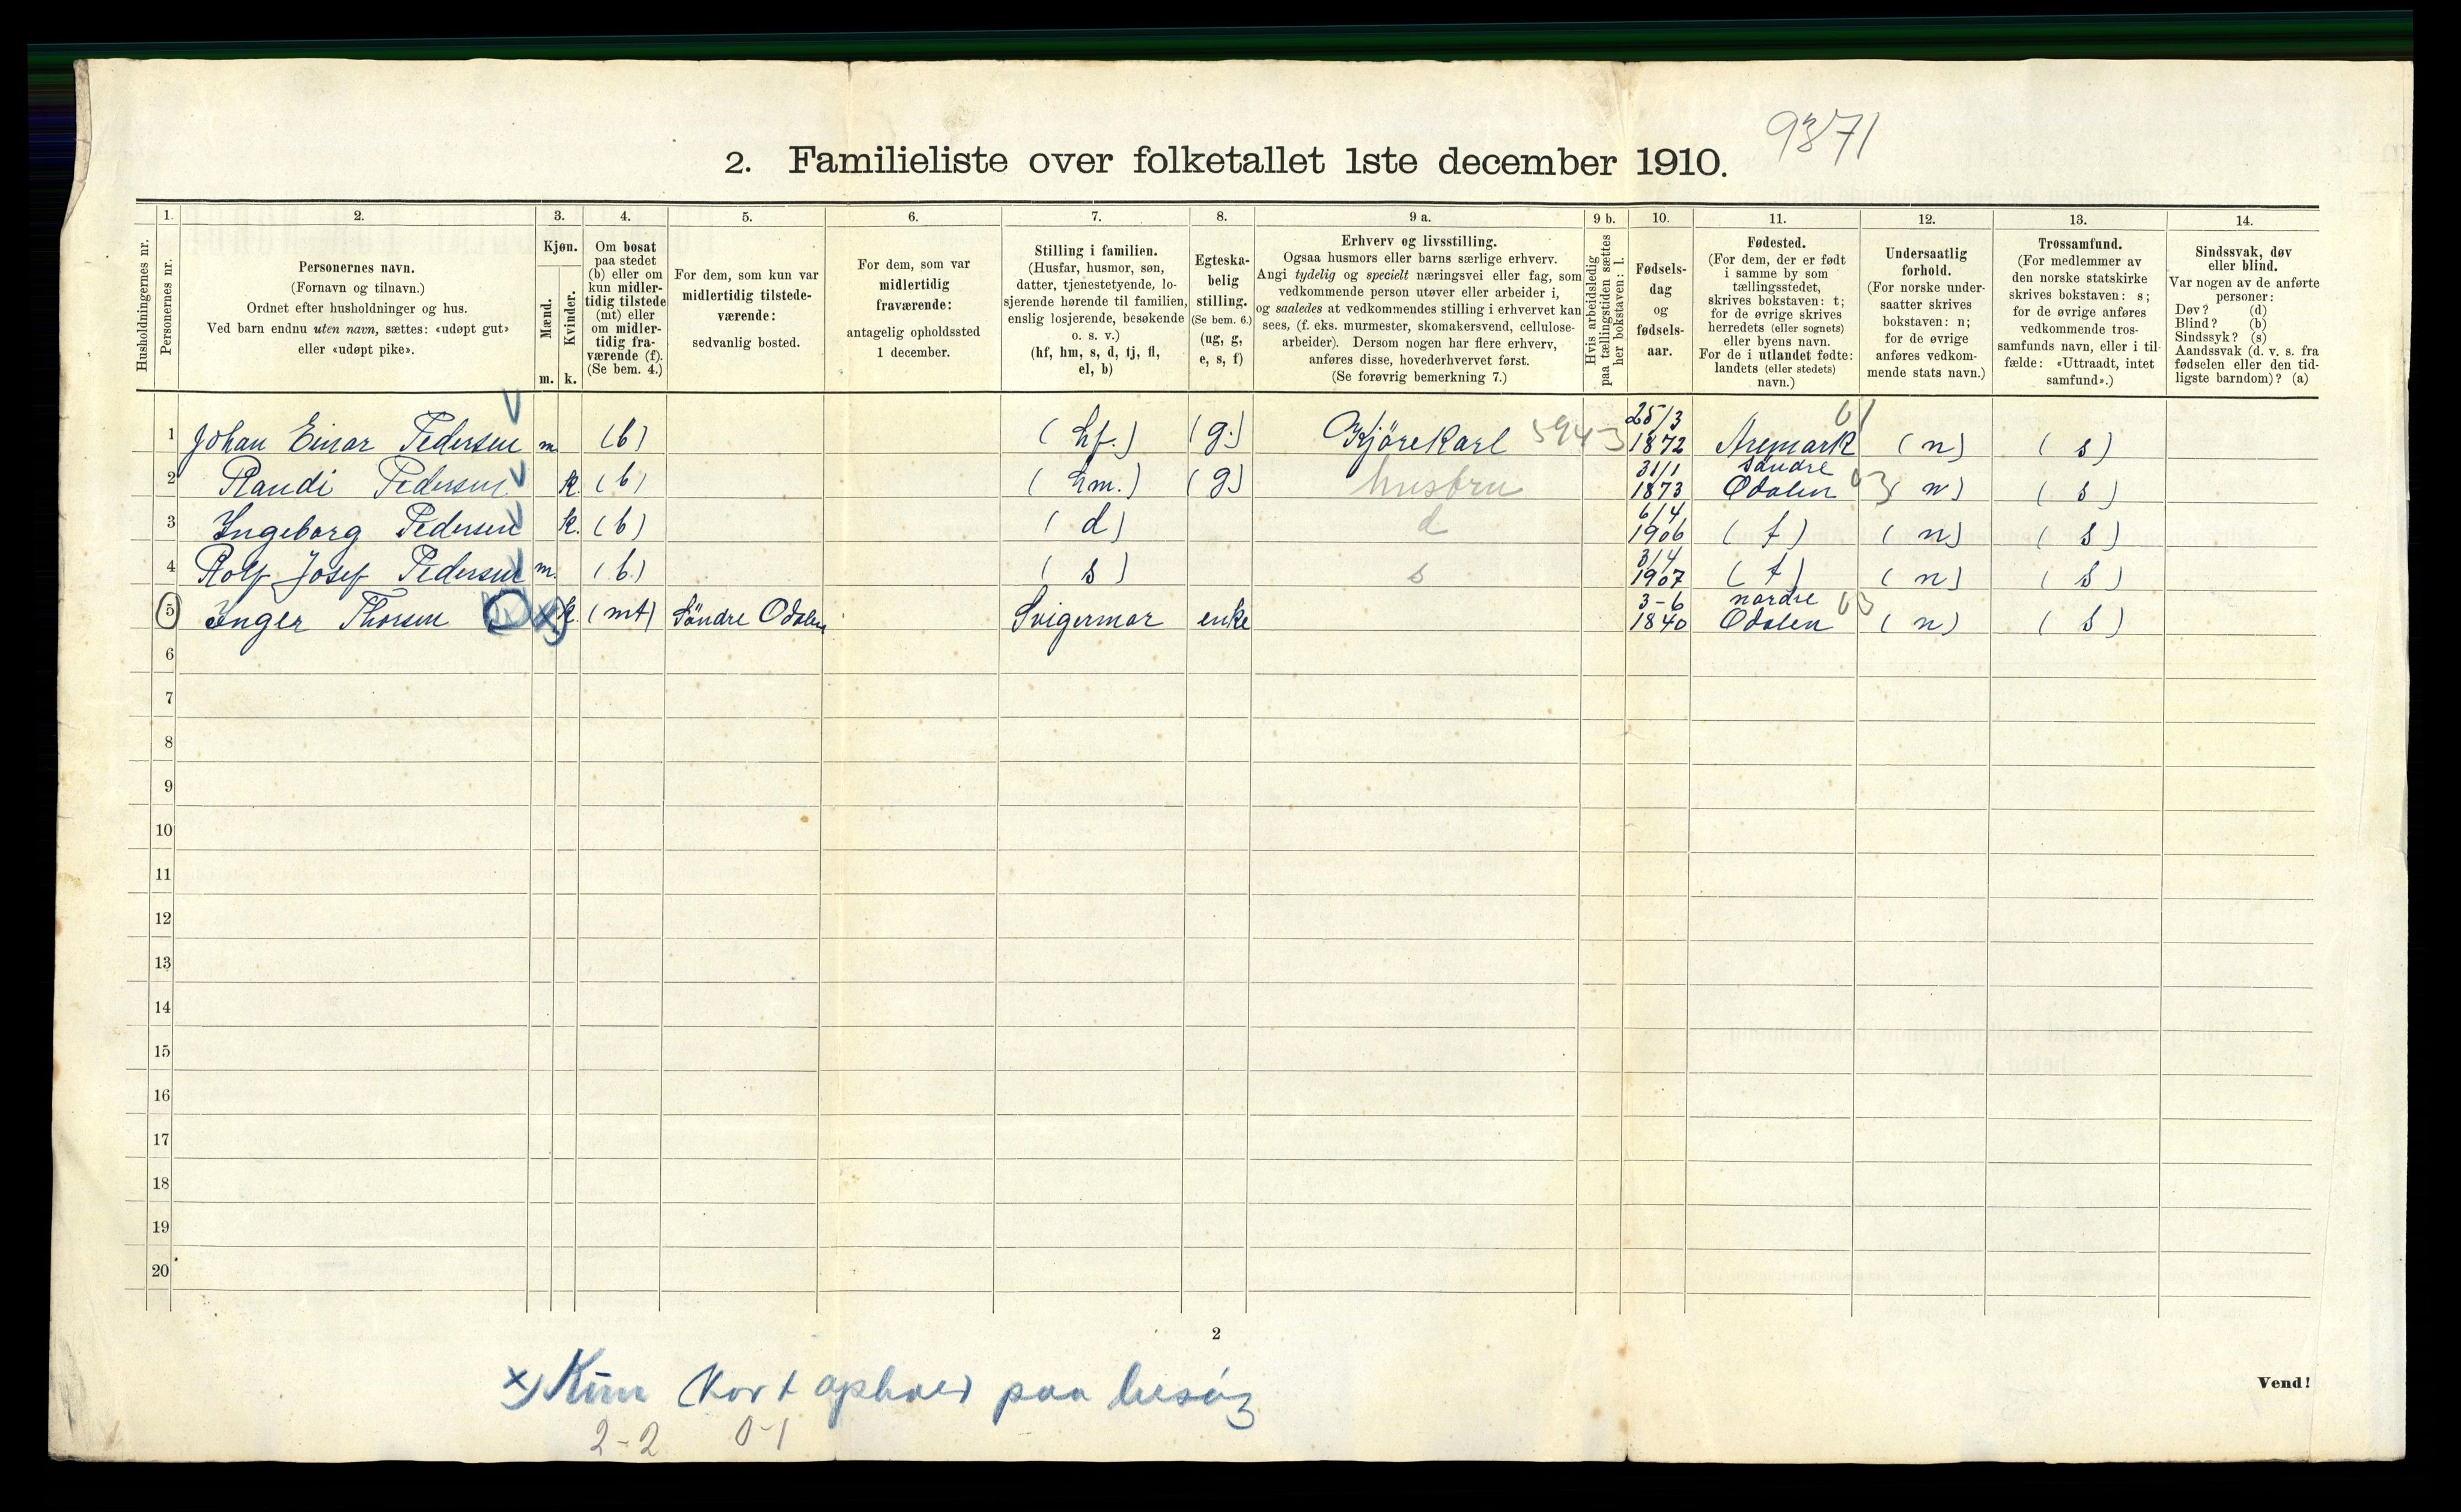 9371
2. Familieliste over folketallet 1ste december 1910.
1. 2. 3. 4. 5. 6. 7. 8. 9 a. 9 b. 10. 11. 12. 13. 14.
Husholdningernes nr.
Personernes nr.
Personernes navn.
(Fornavn og tilnavn.)
Ordnet efter husholdninger og hus.
Ved barn endnu uten navn, sættes: «udøpt gut»
eller «udøpt pike».
Kjøn.
Mænd.
Kvinder.
m. k.
Om bosat
paa stedet
(b) eller om
kun midler-
tidig tilstede
(mt) eller
om midler-
tidig fra-
værende (f).
(Se bem. 4.)
For dem, som kun var
midlertidig tilstede-
værende:
sedvanlig bosted.
For dem, som var
midlertidig
fraværende:
antagelig opholdssted
1 december.
Stilling i familien.
(Husfar, husmor, søn,
datter, tjenestetyende, lo-
sjerende hørende til familien,
enslig losjerende, besøkende
o. s. v.)
(hf, hm, s, d, tj, fl,
el, b)
Egteska-
belig
stilling.
(Se bem. 6.)
(ug, g,
e, s, f)
Erhverv og livsstilling.
Ogsaa husmors eller barns særlige erhverv.
Angi tydelig og specielt næringsvei eller fag, som
vedkommende person utøver eller arbeider i,
og saaledes at vedkommendes stilling i erhvervet kan
sees, (f. eks. murmester, skomakersvend, cellulose-
arbeider). Dersom nogen har flere erhverv,
anføres disse, hovederhvervet først.
(Se forøvrig bemerkning 7.)
Hvis arbeidsledig
paa tællingstiden sættes
her bokstaven: l.
Fødsels-
dag
og
fødsels-
aar.
Fødested.
(For dem, der er født
i samme by som
tællingsstedet,
skrives bokstaven: t;
for de øvrige skrives
herredets (eller sognets)
eller byens navn.
For de i utlandet fødte:
landets (eller stedets)
navn.)
Undersaatlig
forhold.
(For norske under-
saatter skrives
bokstaven: n;
for de øvrige
anføres vedkom-
mende stats navn.)
Trossamfund.
(For medlemmer av
den norske statskirke
skrives bokstaven: s;
for de øvrige anføres
vedkommende tros-
samfunds navn, eller i til-
fælde: «Uttraadt, intet
samfund».)
Sindssvak, døv
eller blind.
Var nogen av de anførte
personer:
Døv? (d)
Blind? (b)
Sindssyk? (s)
Aandssvak (d. v. s. fra
fødselen eller den tid-
ligste barndom)? (a)
1 Johan Einar Pedersen m. (b) (hf.) (g.) Kjörekarl 5943 25/3 1872 Aremark 01 (n) (s)
2 Randi Pedersen k. (b) (hm.) (g) hustru 31/1 1873 Söndre Odalen 03 (n) (s)
3 Ingeborg Pedersen k. (b) (d) d 6/4 1906 (t) (n) (s)
4 Rolf Josef Pedersen m. (b) (s) s 3/4 1907 (t) (n) (s)
5 Inger Thorsen x) k. (mt) Söndre Odalen Svigermor enke 3-6 1840 nordre Odalen 03 (n) (s)
6
7
8
9
10
11
12
13
14
15
16
17
18
19
20
2
x) Kun kort ophold paa besög
Vend!
2-2 0-1